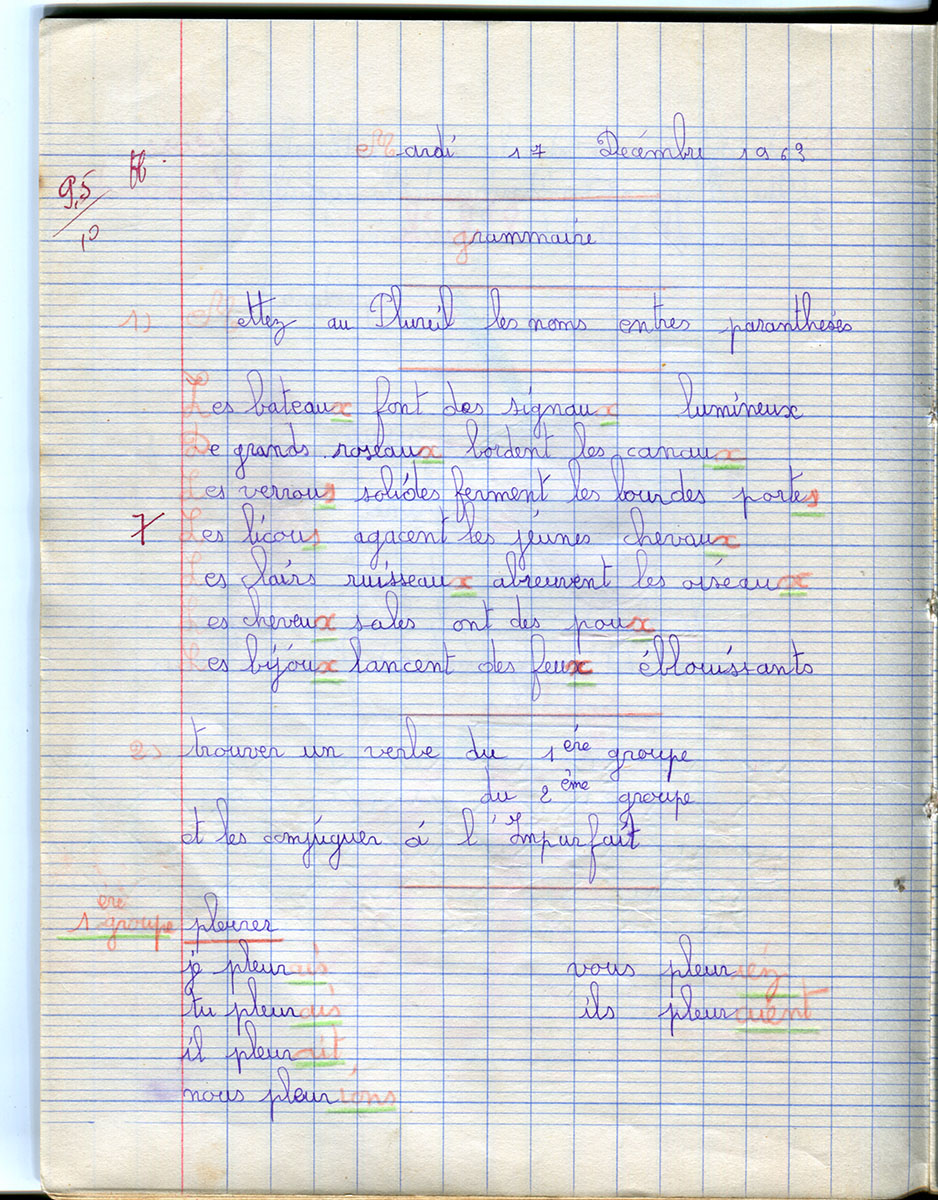 Mardi 17 Décémbre 1963
9,5/10 tb.
grammaire
1) Mettez au Pluréil les noms entres paranthésés
Les bateaux font des signaux lumineux
De grands roseaux bordent les canaux
Les verrous solides ferment les lourdes portes
Les licous agacent les jeunes chevaux
Les clairs ruisseaux abreuvent les oiseaux
Les cheveux sales ont des poux
Les bijoux lancent des feux éblouissants
2) trouver un verbe du 1ère groupe
du 2ème groupe
et les conjuguer à l'Imparfait
1ère groupe pleurer
je pleurais vous pleuriez
tu pleurais ils pleuraient
il pleurait
nous pleurions